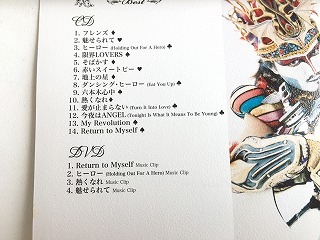 Best
CD
1. フレンズ ♠
2. 魅せられて ♥
3. ヒーロー (Holding Out For A Hero) ♠
4. 限界LOVERS ♠
5. そばかす ♦
6. 赤いスイートピー ♥
7. 地上の星 ♦
8. ダンシング・ヒーロー (Eat You Up) ♠
9. 六本木心中 ♠
10. 熱くなれ♦
11. 愛が止まらない (Turn it Into Love) ♠
12. 今夜はANGEL (Tonight Is What It Means To Be Young) ♠
13. My Revolution ♠
14. Return to Myself ♠
DVD
1. Return to Myself Music Clip
2. ヒーロー (Holding Out For A Hero) Music Clip
3. 熱くなれ Music Clip
4. 魅せられて Music Clip